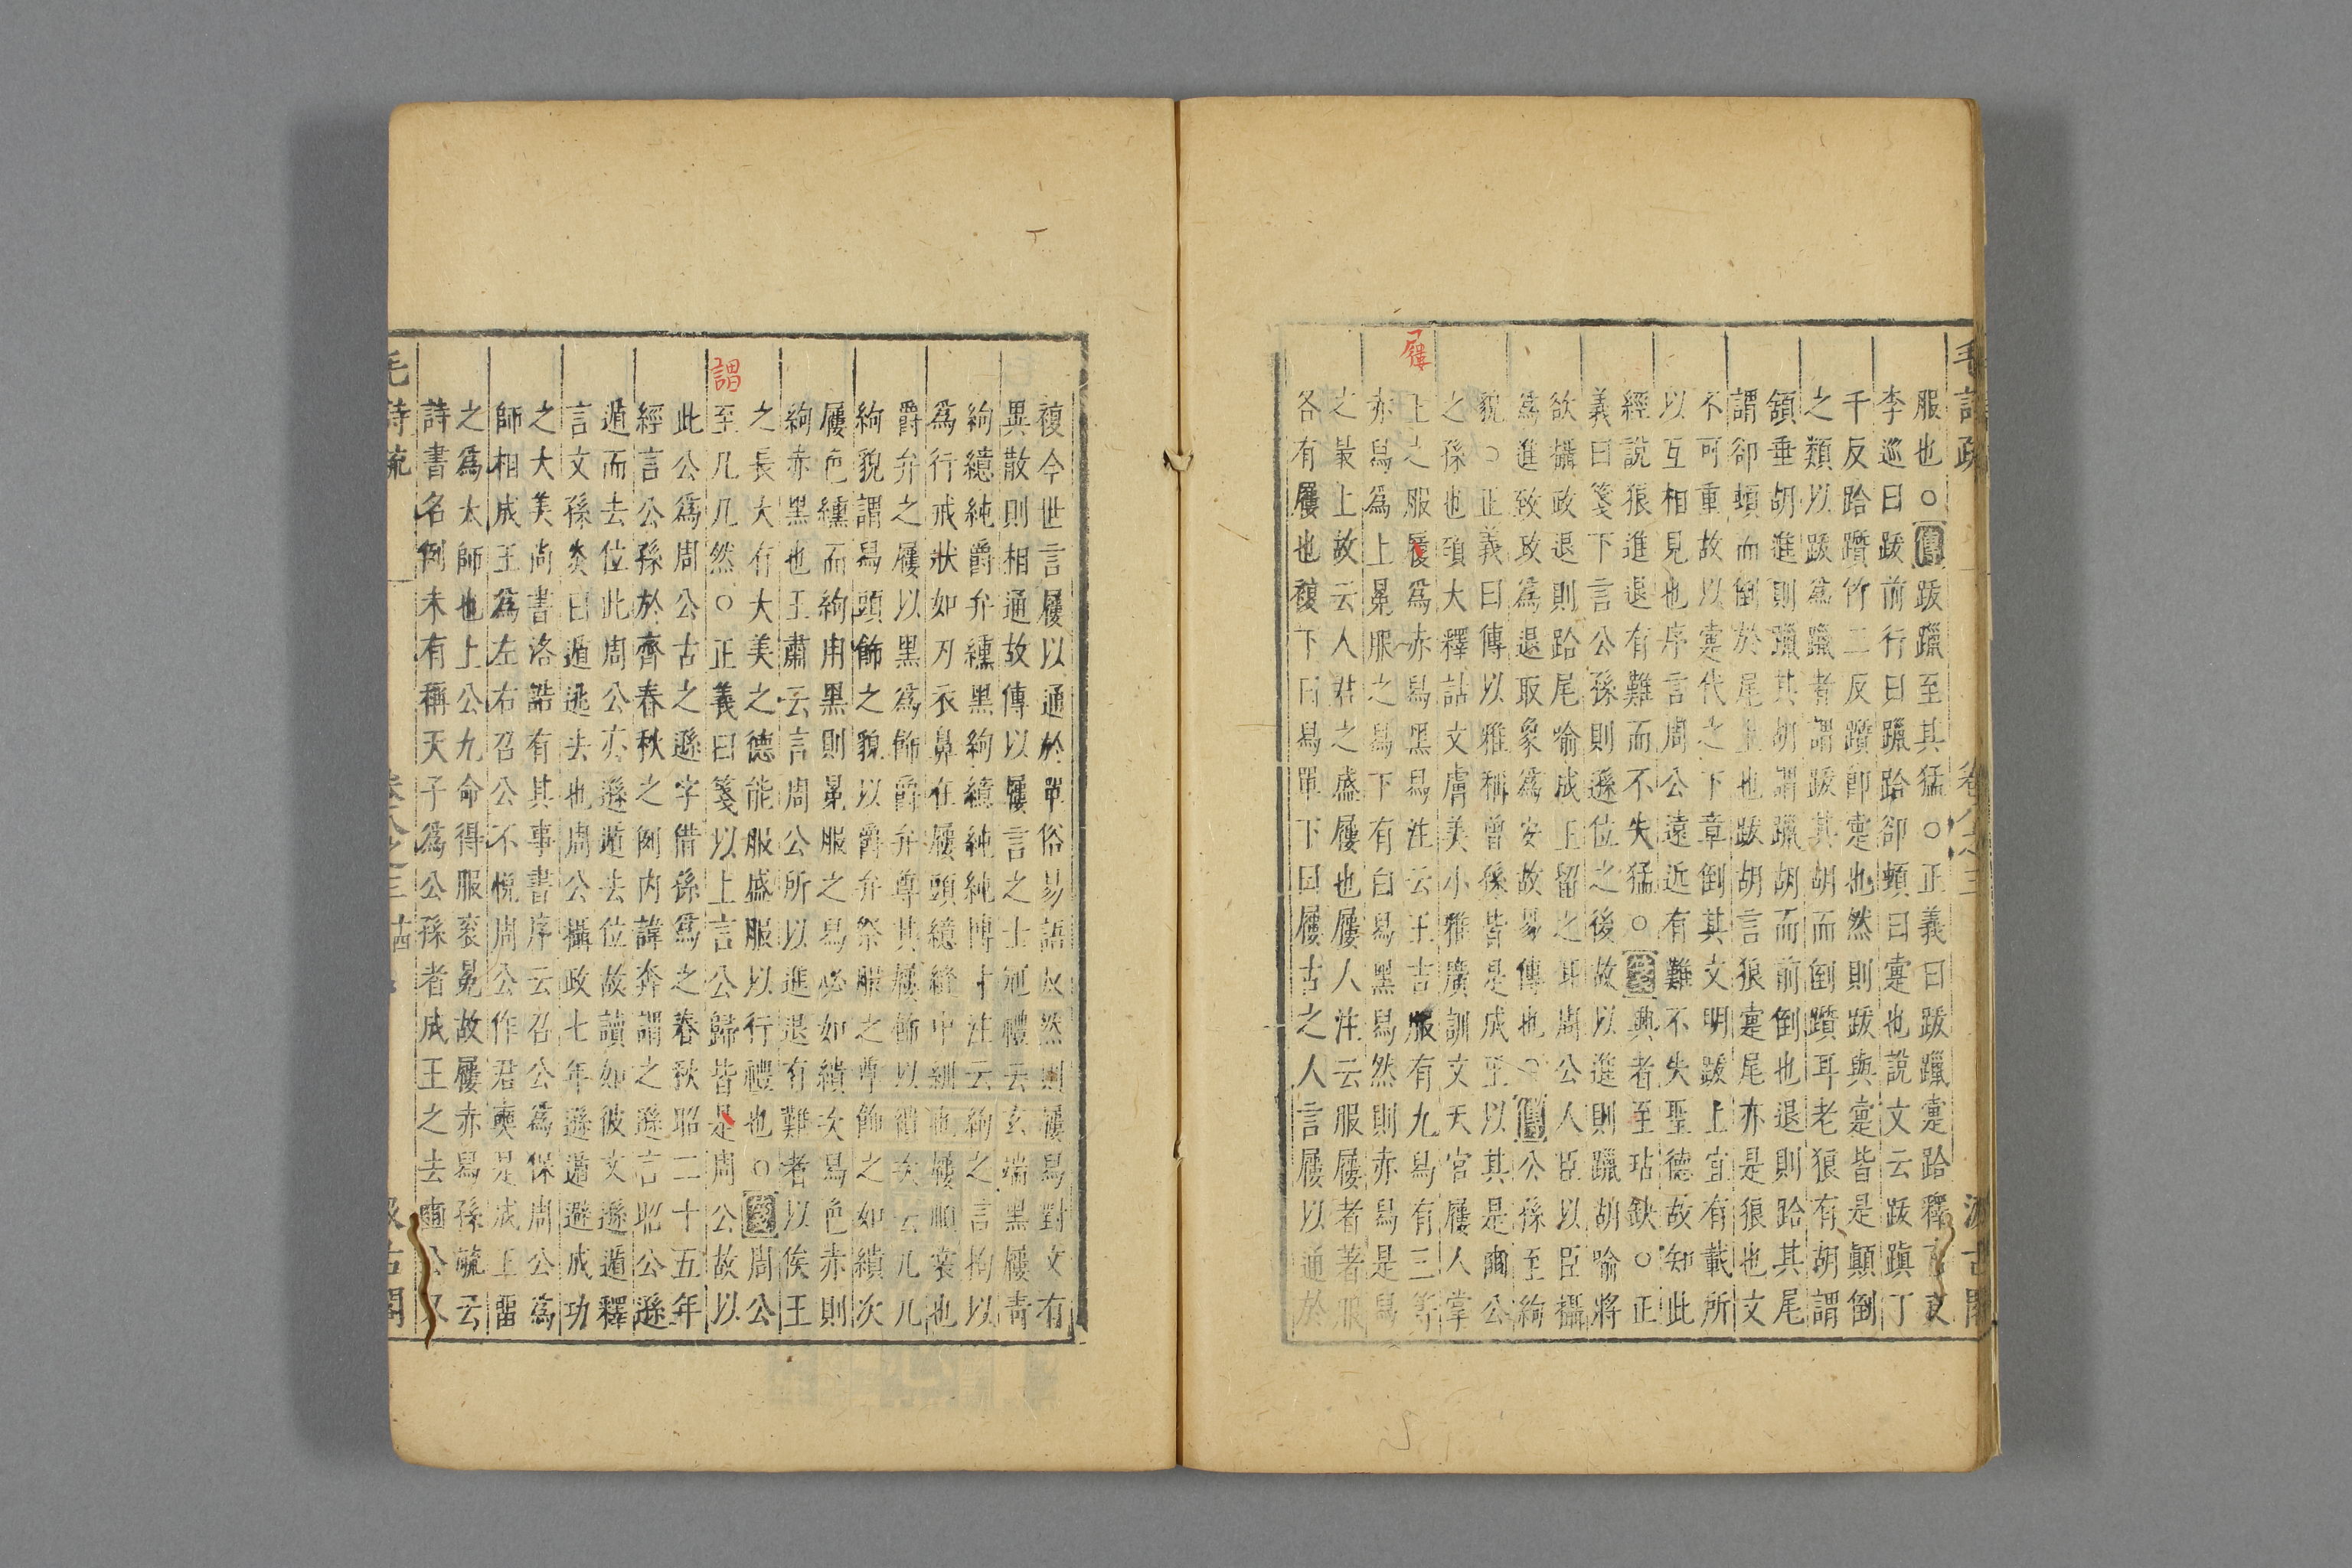 毛詩疏
卷八之三
汲古閣
服也○傳跋躐至其猛○正義曰跋躐疐跲釋言文
李巡曰跋前行曰躐跲卻頓曰疐也說文云跋蹎丁
千反跲躓竹二反躓卽疐也然則跋與疐皆是顚倒
之類以跋爲躐者謂跋其胡而倒躓耳老狼有胡謂
頷垂胡進則躐其胡謂躐胡而前倒也退則跲其尾
謂卻頓而倒於尾上也跋胡言狼疐尾亦是狼也文
不可重故以疐代之下章倒其文明跋上宜有載所
以互相見也序言周公遠近有難不失聖德故知此
經說狼進退有難而不失猛○箋興者至玷缺○正
義曰箋下言公孫則遜位之後故以進則躐胡喻將
欲攝政退則跲尾喻成王留之耳周公人臣以臣攝
爲進致政爲退取象爲安故易傳也○傳公孫至絇
貌○正義曰傳以雅稱曾孫皆是成王以其是豳公
之孫也碩大釋詁文膚美小雅廣訓文天官屨人掌
屨
王之服屨爲赤舄黑舄注云王吉服有九舄有三等
赤舄爲上冕服之舄下有白舄黑舄然則赤舄是舄
之最上故云人君之盛屨也屨人注云服屨者著服
各有屨也複下曰舄單下曰屨古之人言屨以通於
複今世言屨以通於單俗易語反然則屨舄對文有
異散則相通故傳以屨言之士冠禮云玄端黑屨靑
絇繶純爵弁纁黑絇繶純純博寸注云絇之言拘以
爲行戒狀如刀衣鼻在屨頭繶縫中紃也屨順裳也
爵弁之屨以黑爲飾爵弁尊其屨飾以繢次云几几
絇貌謂舄頭飾之貌以爵弁祭服之尊飾之如繢次
屨色纁而絇用黑則冕服之舄必如繢次舄色赤則
絇赤黑也王肅云言周公所以進退有難者以俟王
之長大有大美之德能服盛服以行禮也○箋周公
謂
至几几然○正義曰箋以上言公歸皆是周公故以
此公爲周公古之遜字借孫爲之春秋昭二十五年
經言公孫於齊春秋之例內諱奔謂之遜言昭公遜
遁而去位此周公亦遜遁去位故讀如彼文遜遁釋
言文孫炎曰遁逃去也周公攝政七年遜遁避成功
之大美尚書洛誥有其事書序云召公爲保周公爲
師相成王爲左右召公不悅周公作君奭是成王留
之爲太師也上公九命得服袞冕故屨亦舄孫毓云
詩書名例未有稱天子爲公孫者成王之去豳公又
毛詩疏
卷八之三
古
汲古閣